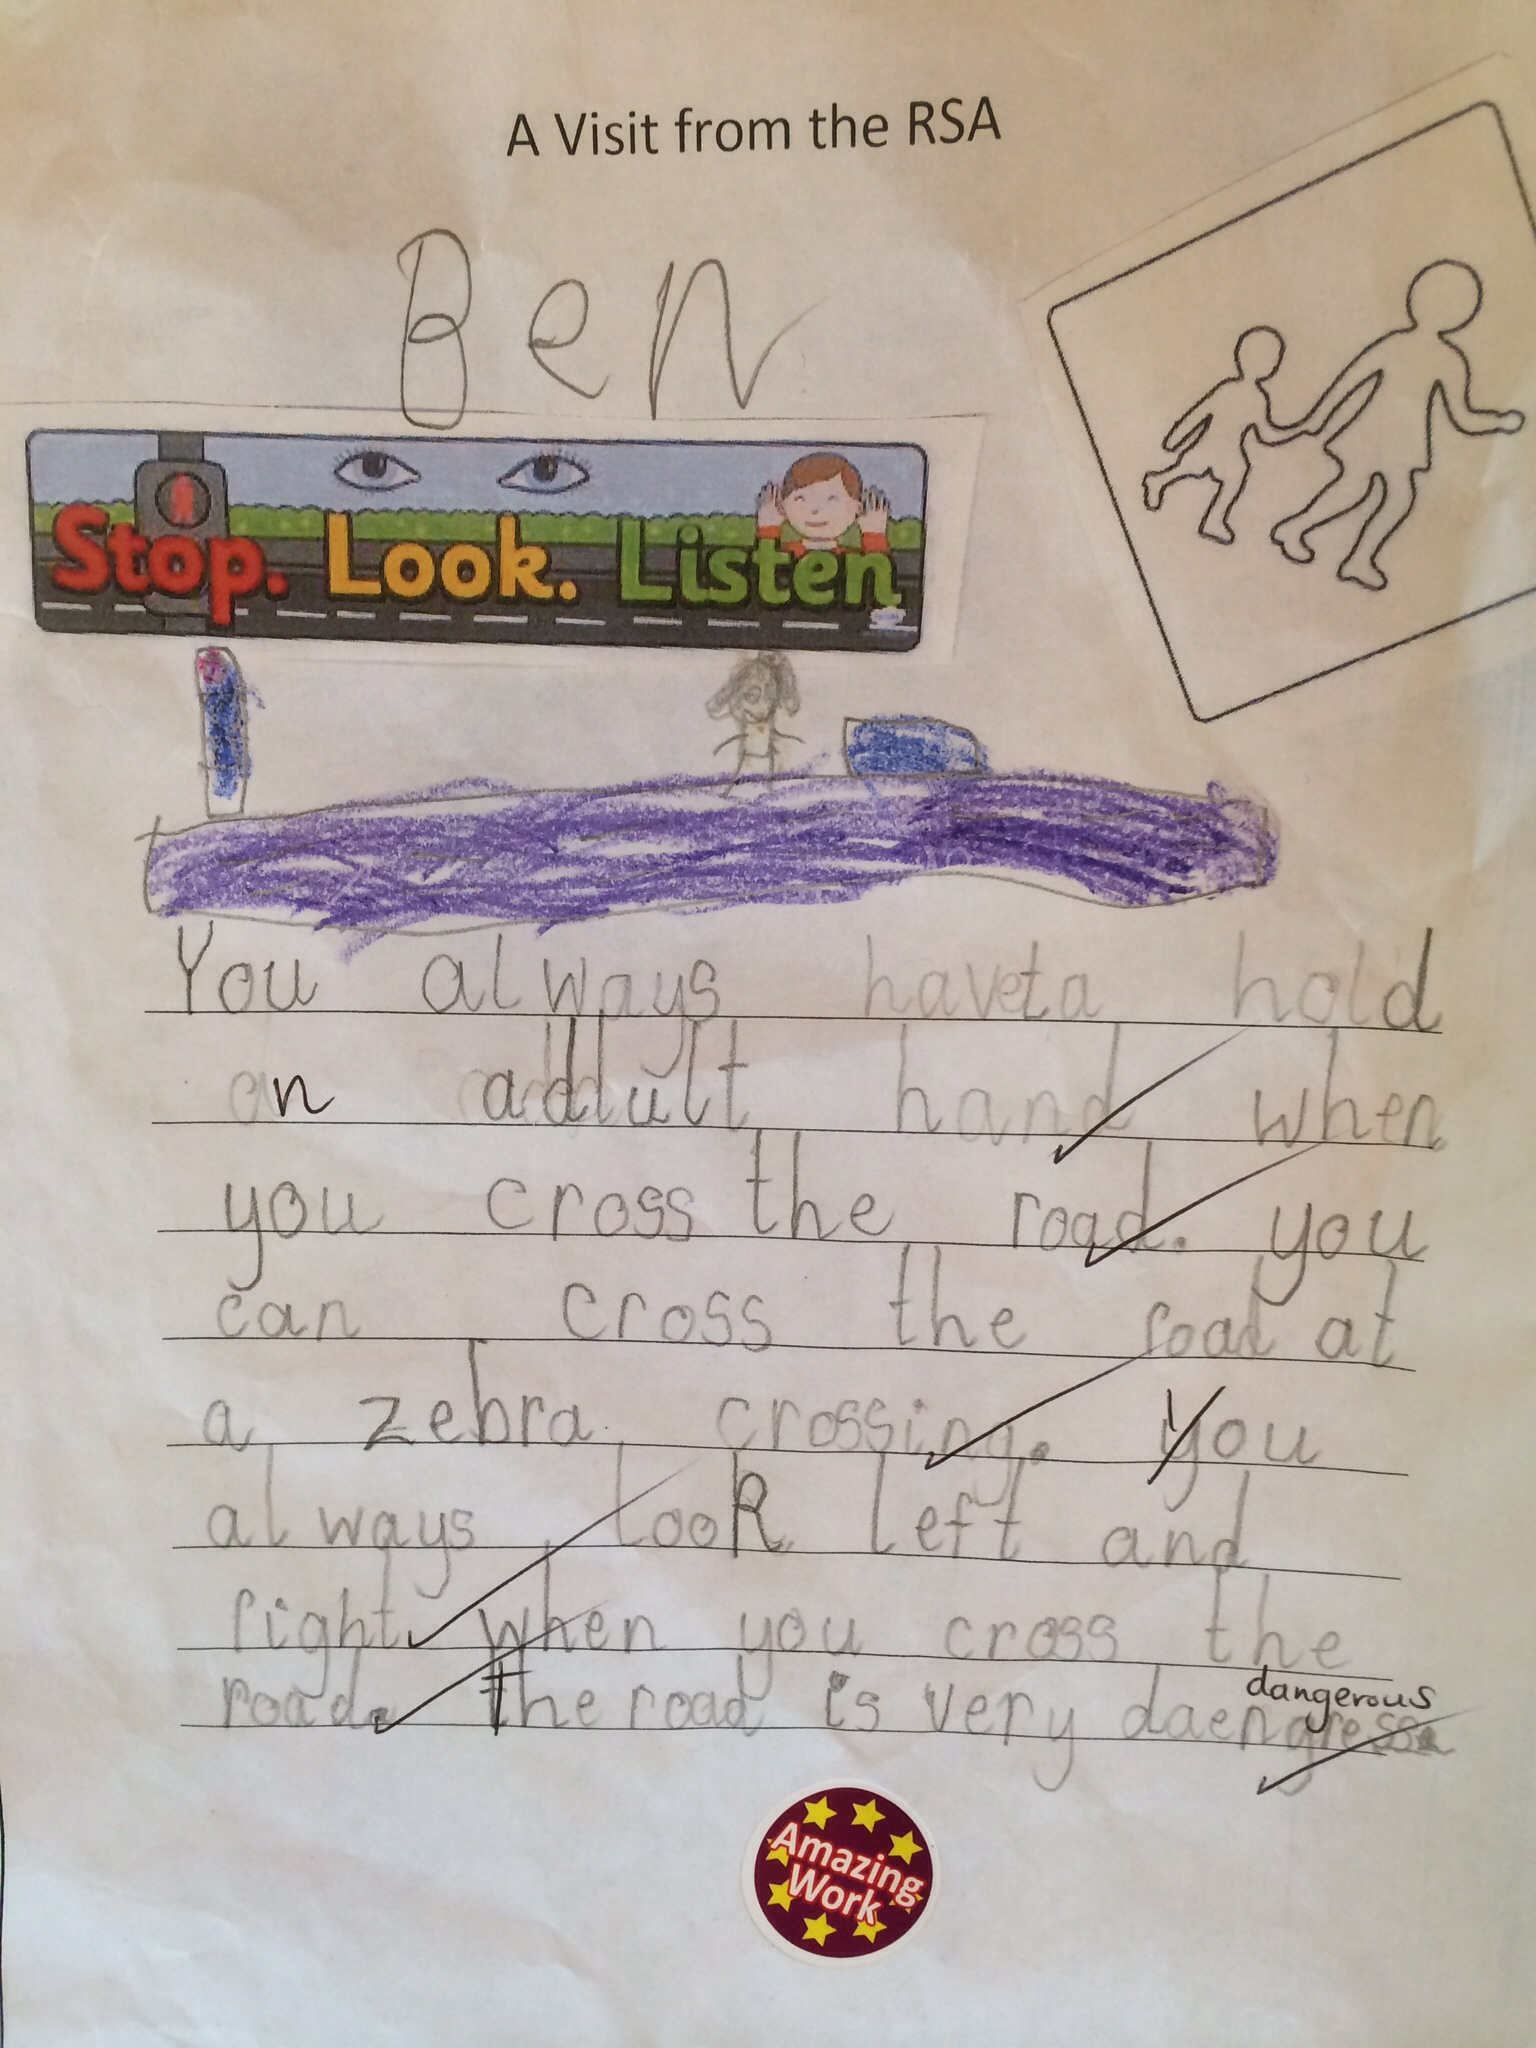 A Visit from the RSA
Ben
Stop. Look. Listen
You always haveta hold
an addult hand when
you cross the road. you
can cross the road at
a zebra crossing. You
always look left and
right when you cross the
dangerous
road. The road is very daengress
Amazing
Work